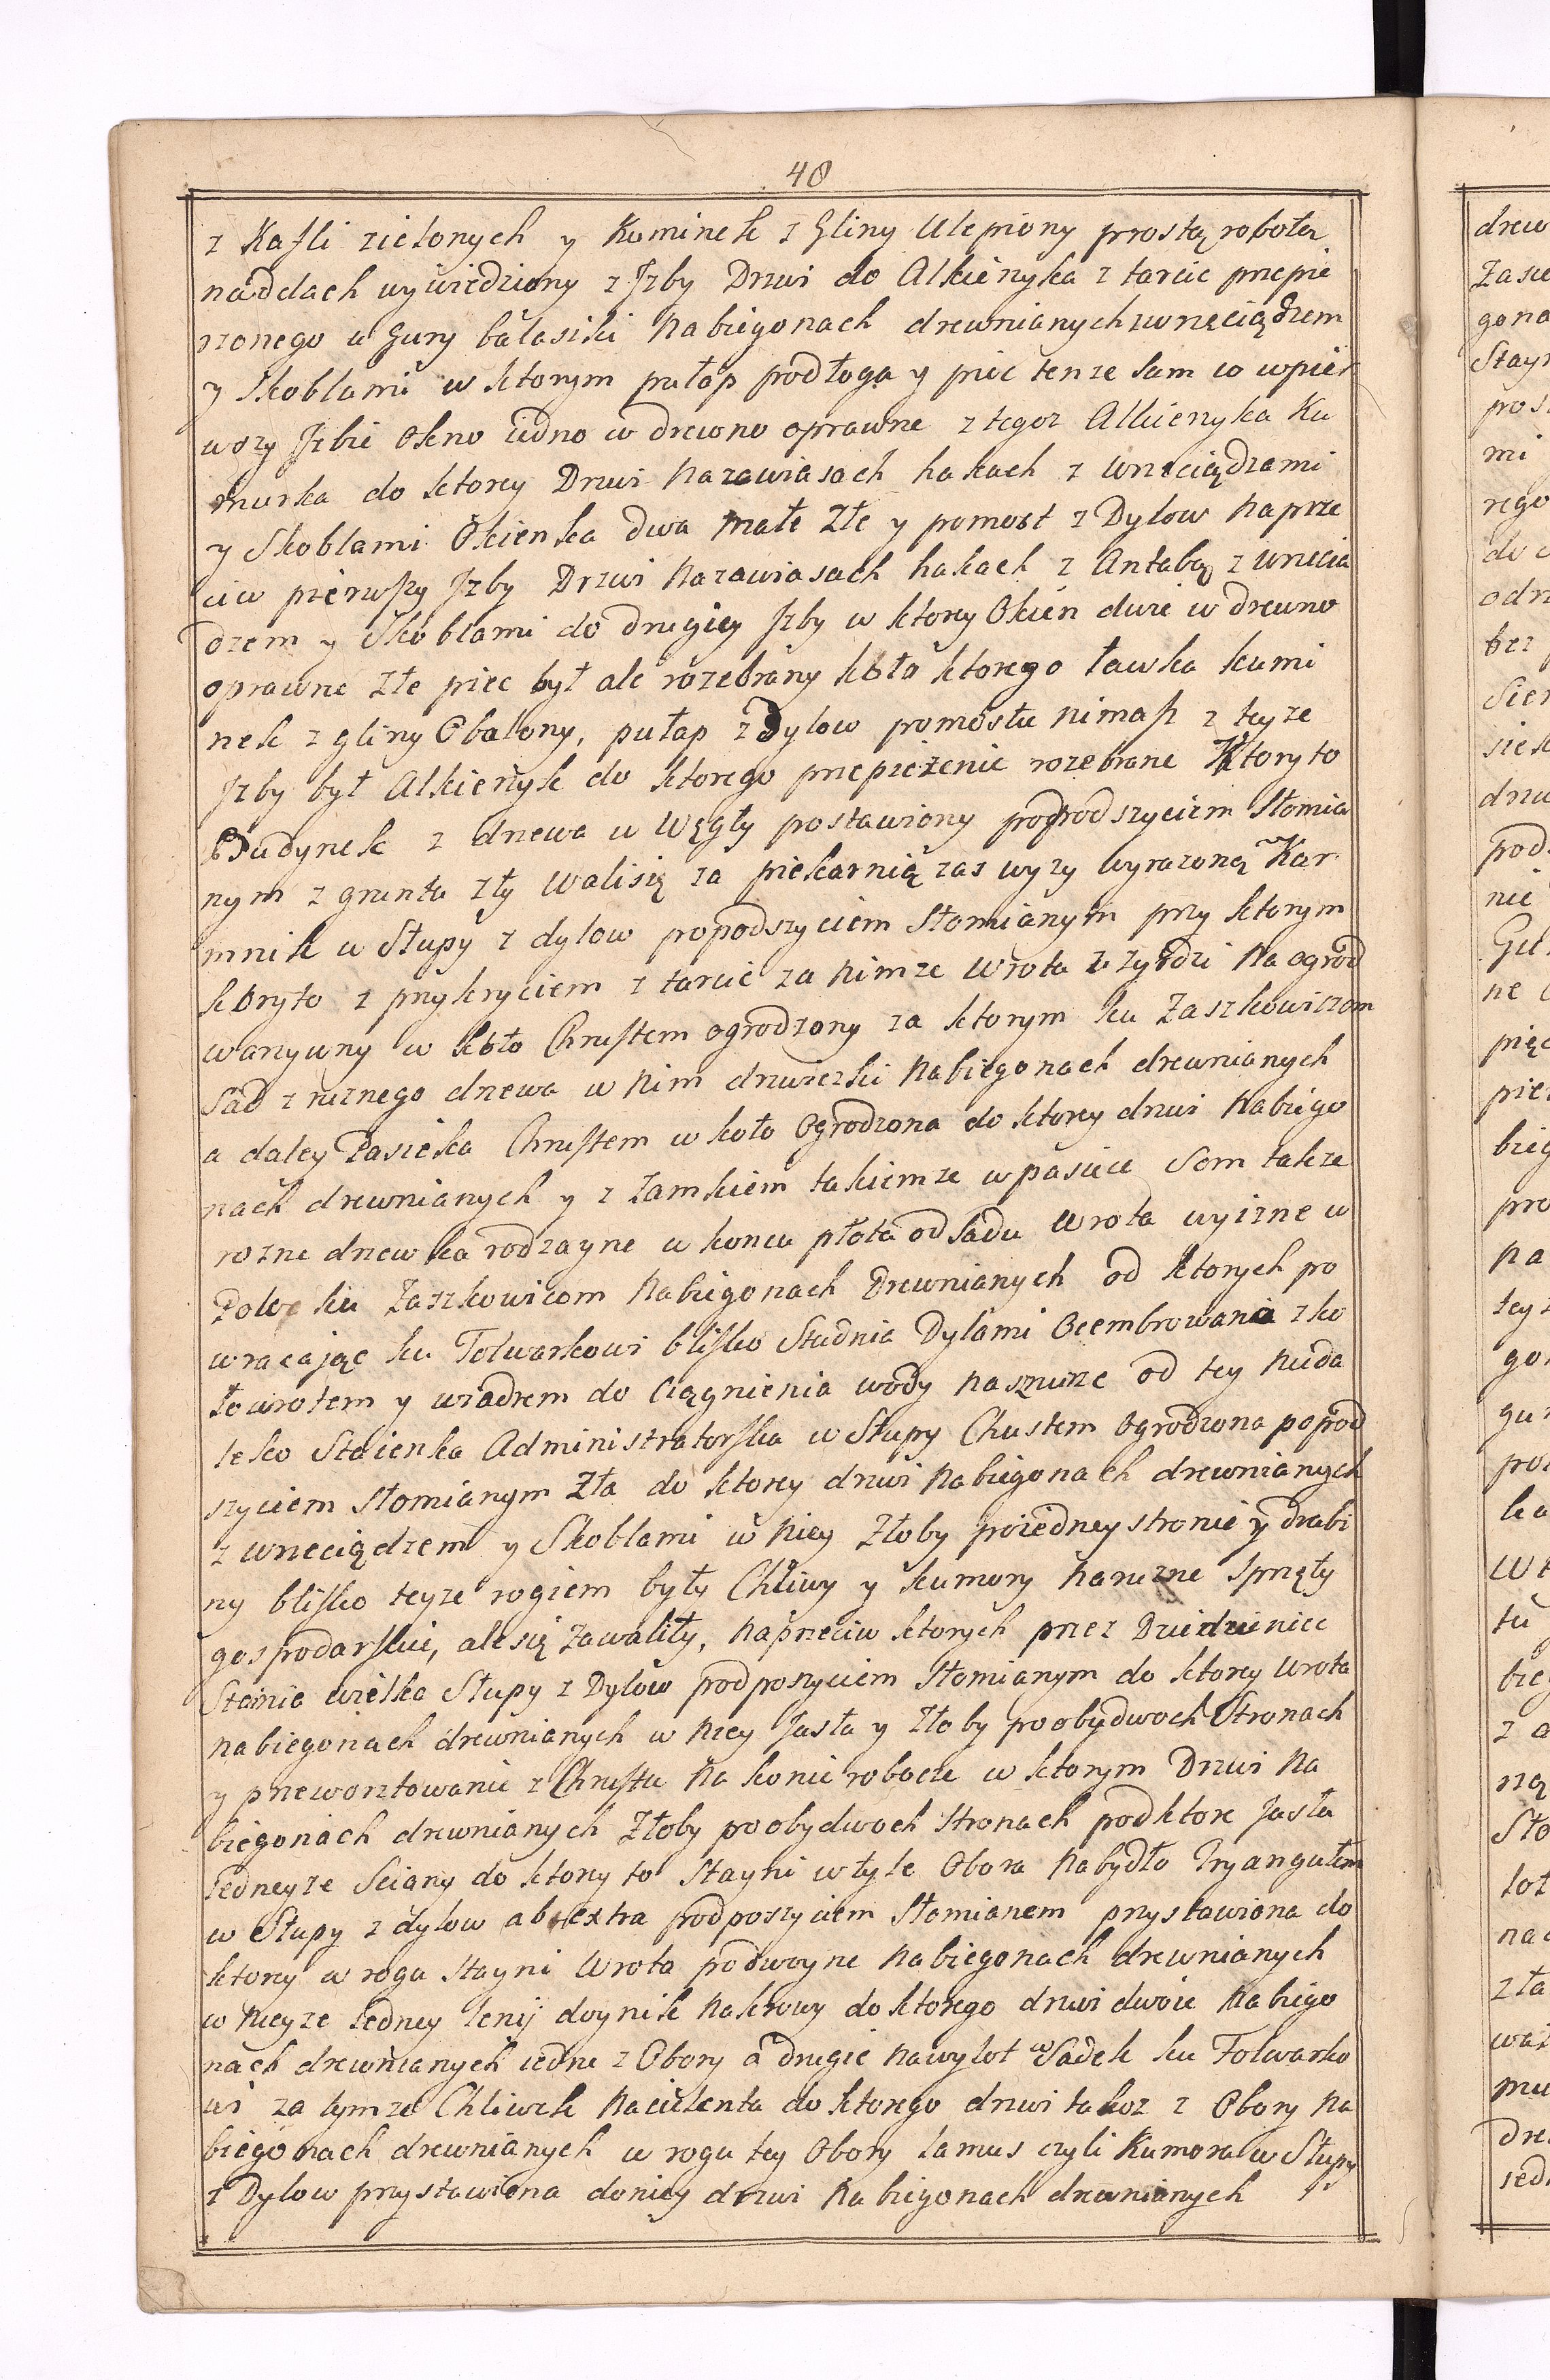 48
z Kafli zielonych y Kominek z Gliny Ulepiony prostą robotą
naddach wywiedziony z Jzby Drzwi do Alkierzyka z tarcic przepie
rzonego u Gury balasiki Nabiegonach drewnianych zwrzeciądzem
y Skoblami w ktorym pułap podłoga y piec tenze Sam co wpier
wszy Jzbie Okno iedno w drewno oprawne z tegoz Alkierzyka Ku
murka do ktorey Drzwi Nazawiasach hakach z wrzeciądzami
y Skoblami Okienka dwa małe Złe y pomost z Dylow Naprze
ciw pierwszy Jzby Drzwi Nazawiasach hakach z Antabą z wrzecia
dzem y Skoblami do drugiey Jzby w ktorey Okien dwie w drewno
oprawne złe piec był ale rozebrany koło ktorego ławka kumi
nek z gliny Obalony, pułap z Dylow pomostu nimasz z teyze
Jzby był Alkierzyk do ktorego przepierzenie rozebrane Ktoryto
Budynek z drzewa w Węgły postawiony popodszyciem Słomia
nym z gruntu zły walisię za piekarnią zas wyzy wyrazoną Kar
mnik w Słupy z dylow popodszyciem Słomianym przy ktorym
koryto z przykryciem z tarcic za Nimze wrota z zyrdzi Na ogrod
warzywny w koło Chrustem ogrodzony za ktorym ku Zaszkowiczom
Sad z ruznego drzewa w Nim drzwiczki Nabiegonach drewnianych
a daley Pasieka Chrustem w koło Ogrodzona do ktorey drzwi Nabiego
nach drewnianych y z Zamkiem takiemze w pasiece Som takze
rozne drzewka rodzayne w koncu płota od Sadu Wrota wyizne w
Pole ku Zaszkowicom Nabiegonach Drewnianych od ktorych po
wracając ku Folwarkowi blisko Studnia Dylami Ocembrowania z ko
łowrotem y wiadrem do Ciągnienia wody naszwurze od tey nieda
leko Staienka Administratorska w Słupy Chustem Ogrodzona popod
szyciem Słomianym Zła do ktorey drzwi Nabiegonach drewnianych
z wrzeciądzem y Skoblami w Niey Złoby poiedney stronie y drabi
ny blisko teyze rogiem były Chliwy y kumory Naruzne Sprzęty
gospodarskie, ale się zawaliły, Naprzeciw ktorych przez Dziedzieniec
Stainia wielka Słupy z Dylow podposzyciem Słomianym do ktorey wrota
nabiegonach drewnianych w Niey Jasła y Złoby poobydwoch Stronach
y przeworztowanie z Chrustu Na konie robocze w ktorym Drzwi Na
biegonach drewnianych Złoby poobydwoch Stronach podktore Jasła
iedneyze Sciany do ktorey to Stayni w tyle Obora Nabydło Tryangułem
w Słupy z dylow ab extra podposzyciem Słomianem przystawiona do
ktorey w rogu Stayni Wrota podwoyne Nabiegonach drewnianych
w Nieyze iedney lenij doynik Nakrowy do ktorego drzwi dwoie Nabiego
nach drewnianych iedne z Obory a drugie nawylot w Sadek ku Folwarko
wi za tymze Chliwek Nacielenta do ktorego drzwi takoz z Obory Na
biegonach drewnianych w rogu tey Obory Lamus czyli Kumora w Słupy
z Dylow przystawiona doniey drzwi Nabiegonach drewnianych